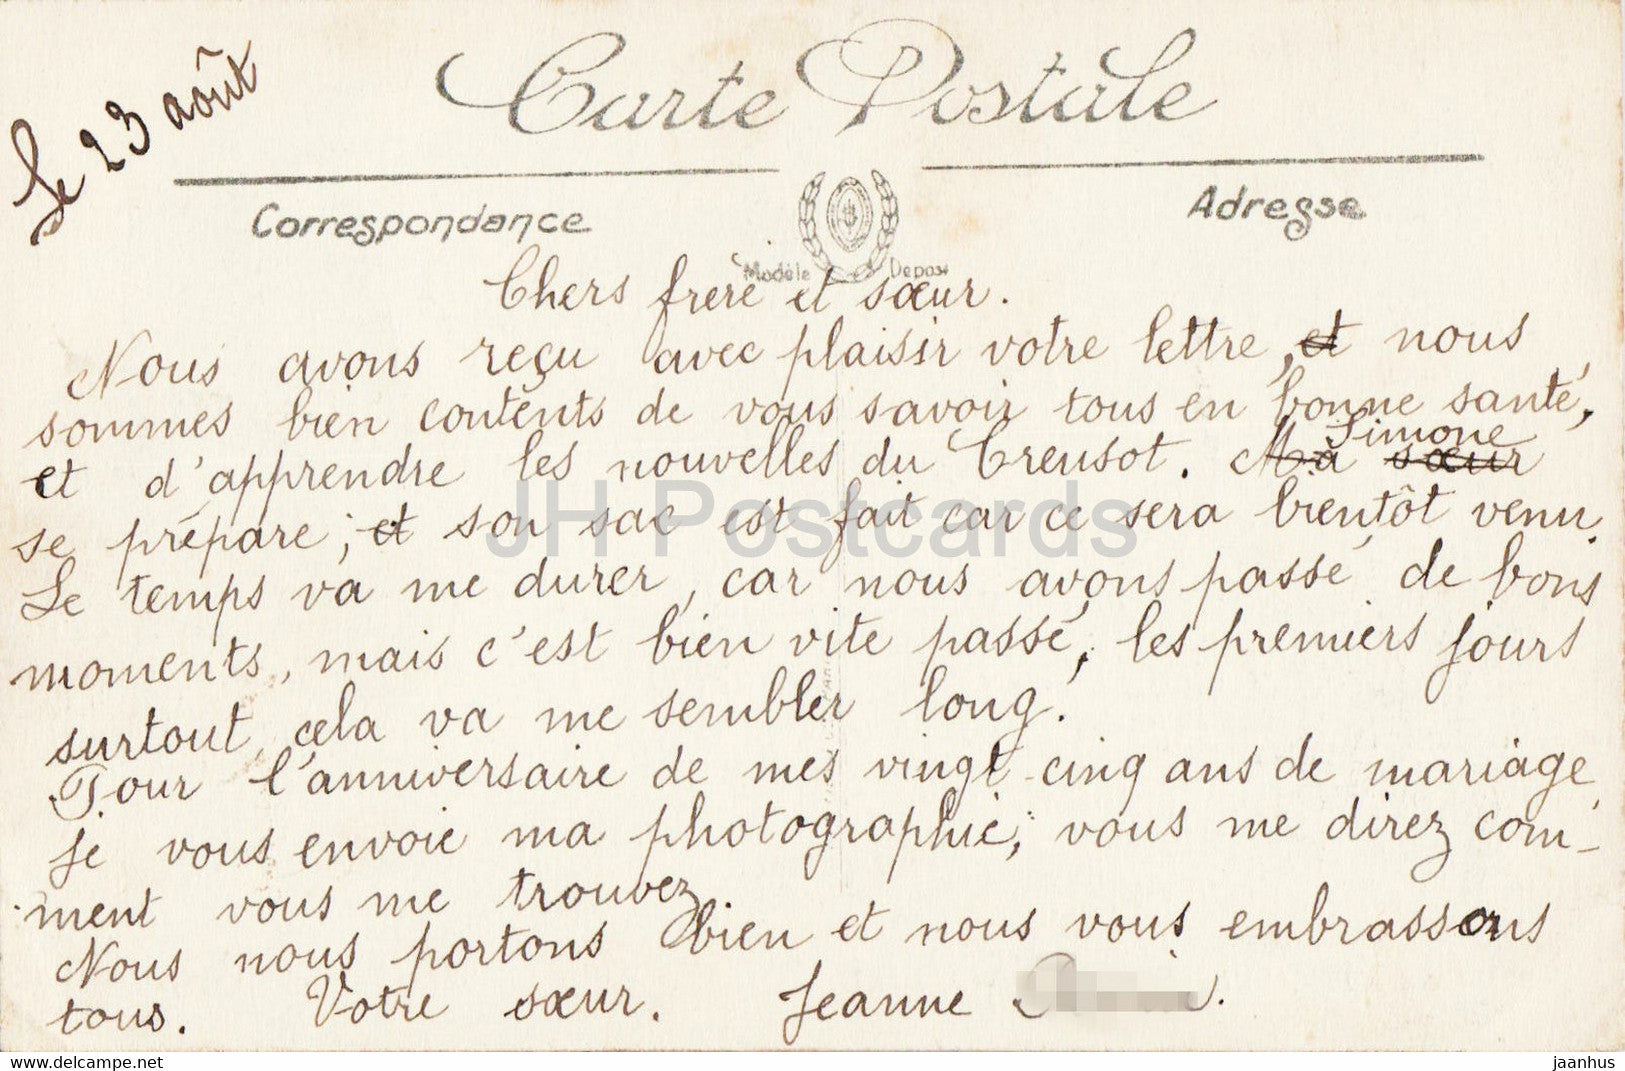 Le 23 août
Carte Postale
Correspondance
Adresse
Modèle Déposé
Chers frère et sœur.
Nous avons reçu avec plaisir votre lettre, et nous
sommes bien contents de vous savoir tous en bonne santé,
et d'apprendre les nouvelles du Creusot. Ma sœur Simone
se prépare, et son sac est fait car ce sera bientôt venu.
Le temps va me durer, car nous avons passé de bons
moments, mais c'est bien vite passé, les premiers jours
surtout, cela va me sembler long.
Pour l'anniversaire de mes vingt-cinq ans de mariage,
je vous envoie ma photographie, vous me direz com-
ment vous me trouvez.
Nous nous portons bien et nous vous embrassons
tous. Votre sœur. Jeanne
JH Postcards
https://www.delcampe.net
jaanhus